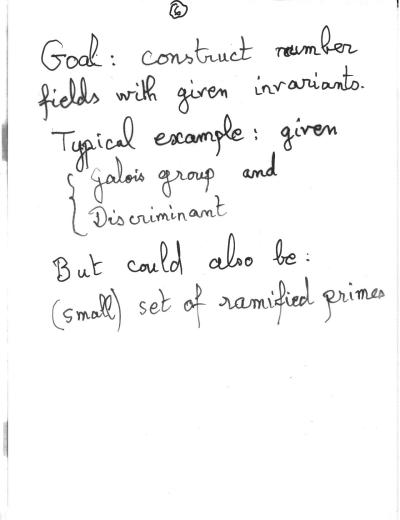 Goal: construct number
fields with given invariants.
Typical example: given
Galois group and
Discriminant
But could also be:
(small) set of ramified primes